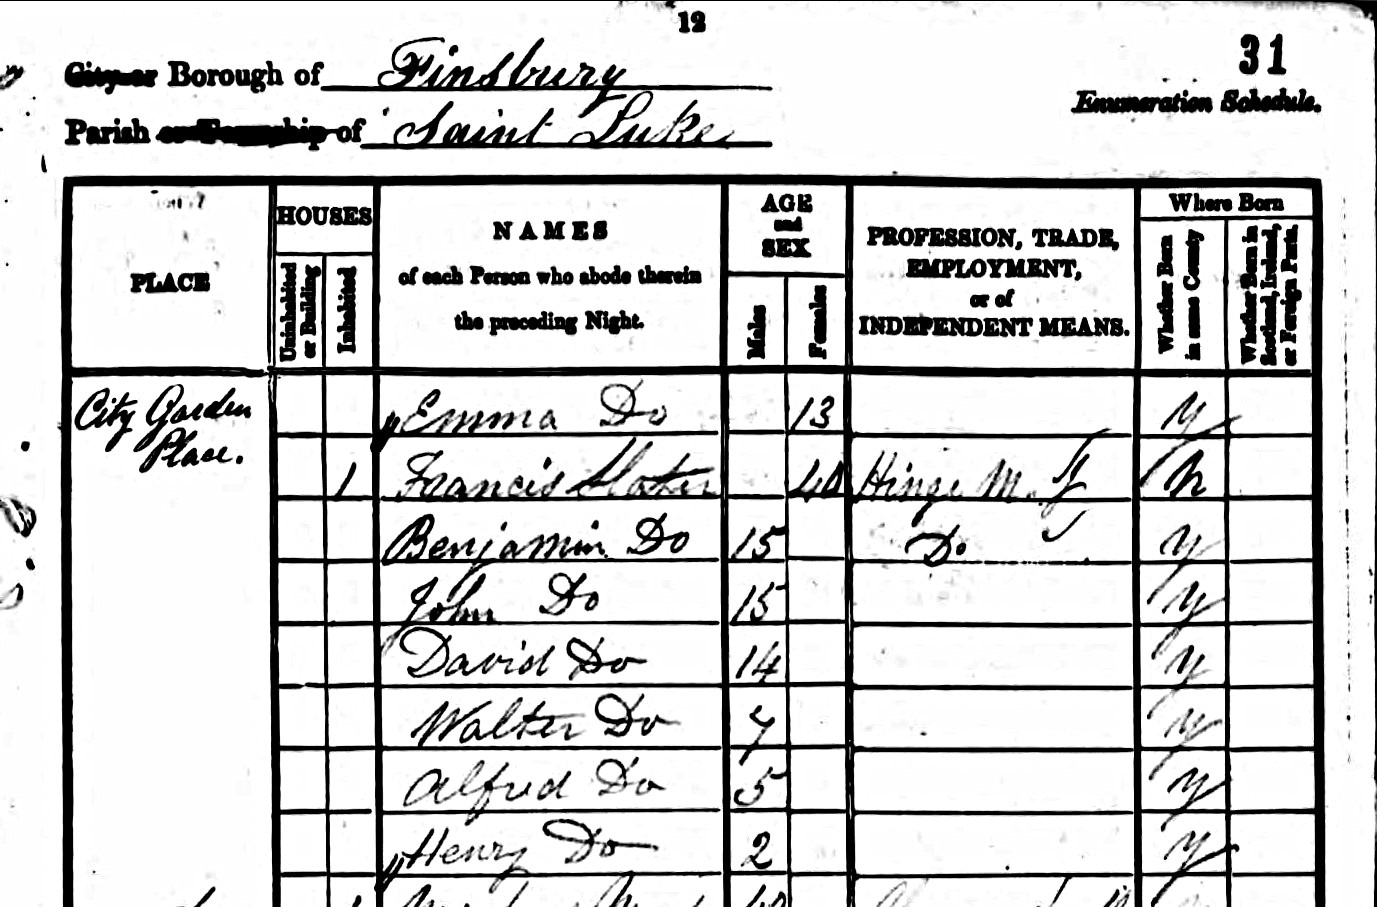 12
31
City or Borough of Finsbury
Enumeration Schedule.
Parish or Township of Saint Luke
PLACE
HOUSES
Uninhabited or Building
Inhabited
NAMES
of each Person who abode therein
the preceding Night.
AGE
and
SEX
Males
Females
PROFESSION, TRADE,
EMPLOYMENT,
or of
INDEPENDENT MEANS.
Where Born
Whether Born in same County
Whether Born in Scotland, Ireland, or Foreign Parts.
City Garden Emma Do 13 y
Place.
1 Francis Slater 40 Hinge M. J n
Benjamin Do 15 Do y
John Do 15 y
David Do 14 y
Walter Do 7 y
Alfred Do 5 y
Henry Do 2 y